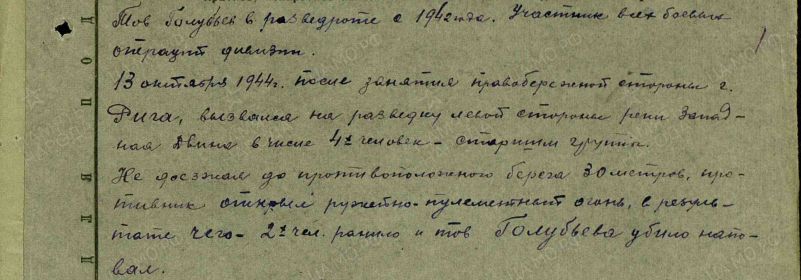 Тов Голубьев в разведроте с 1942 года. Участник всех боевых
операций дивизии.
13 октября 1944 г. после занятия правобережной стороны г.
Рига, вызвался на разведку левой стороны реки Запад-
ная Двина в числе 4х человек - старшим группы.
Не доезжая до противоположного берега 30 метров, про-
тивник открыл ружейно-пулеметный огонь, в резуль-
тате чего - 2х чел. ранило и тов Голубьева убило напо-
вал.
Д Л Я
Д О П